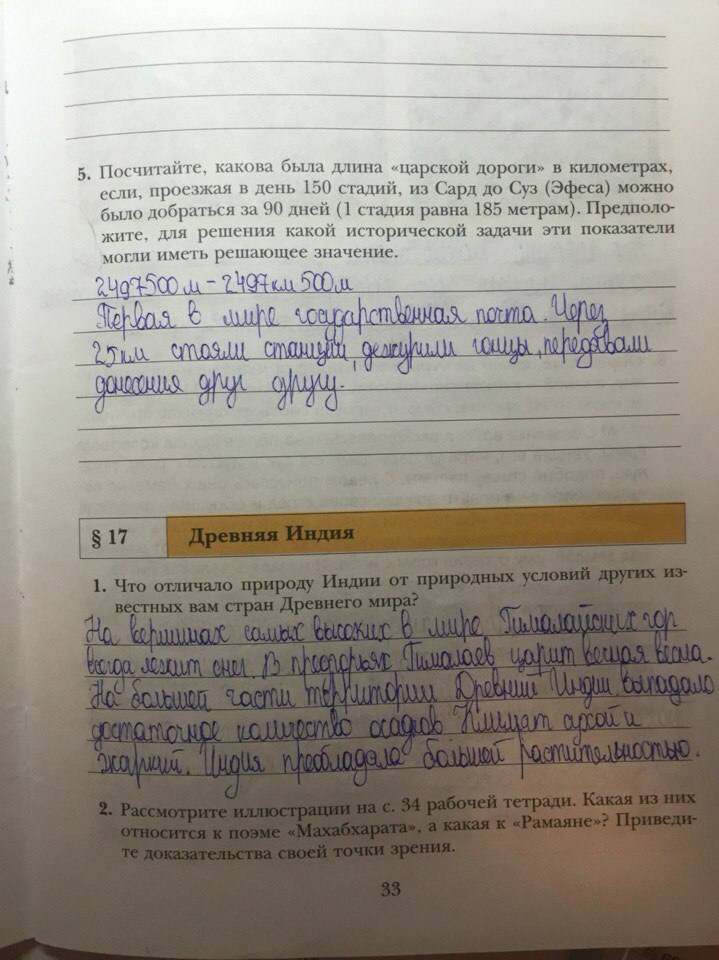 5. Посчитайте, какова была длина «царской дороги» в километрах,
если, проезжая в день 150 стадий, из Сард до Суз (Эфеса) можно
было добраться за 90 дней (1 стадия равна 185 метрам). Предполо-
жите, для решения какой исторической задачи эти показатели
могли иметь решающее значение.
2497500 м - 2497 км 500 м
Первая в мире государственная почта. Через
25 км стояли станции, дежурили гонцы, передавали
донесения друг другу.
§ 17 Древняя Индия
1. Что отличало природу Индии от природных условий других из-
вестных вам стран Древнего мира?
На вершинах самых высоких в мире Гималайских гор
всегда лежит снег. В предгорьях Гималаев царит вечная весна.
На большей части территории Древний Индии выпадало
достаточное количество осадков Климат сухой и
жаркий. Индия преобладала большой растительностью.
2. Рассмотрите иллюстрации на с. 34 рабочей тетради. Какая из них
относится к поэме «Махабхарата», а какая к «Рамаяне»? Приведи-
те доказательства своей точки зрения.
33